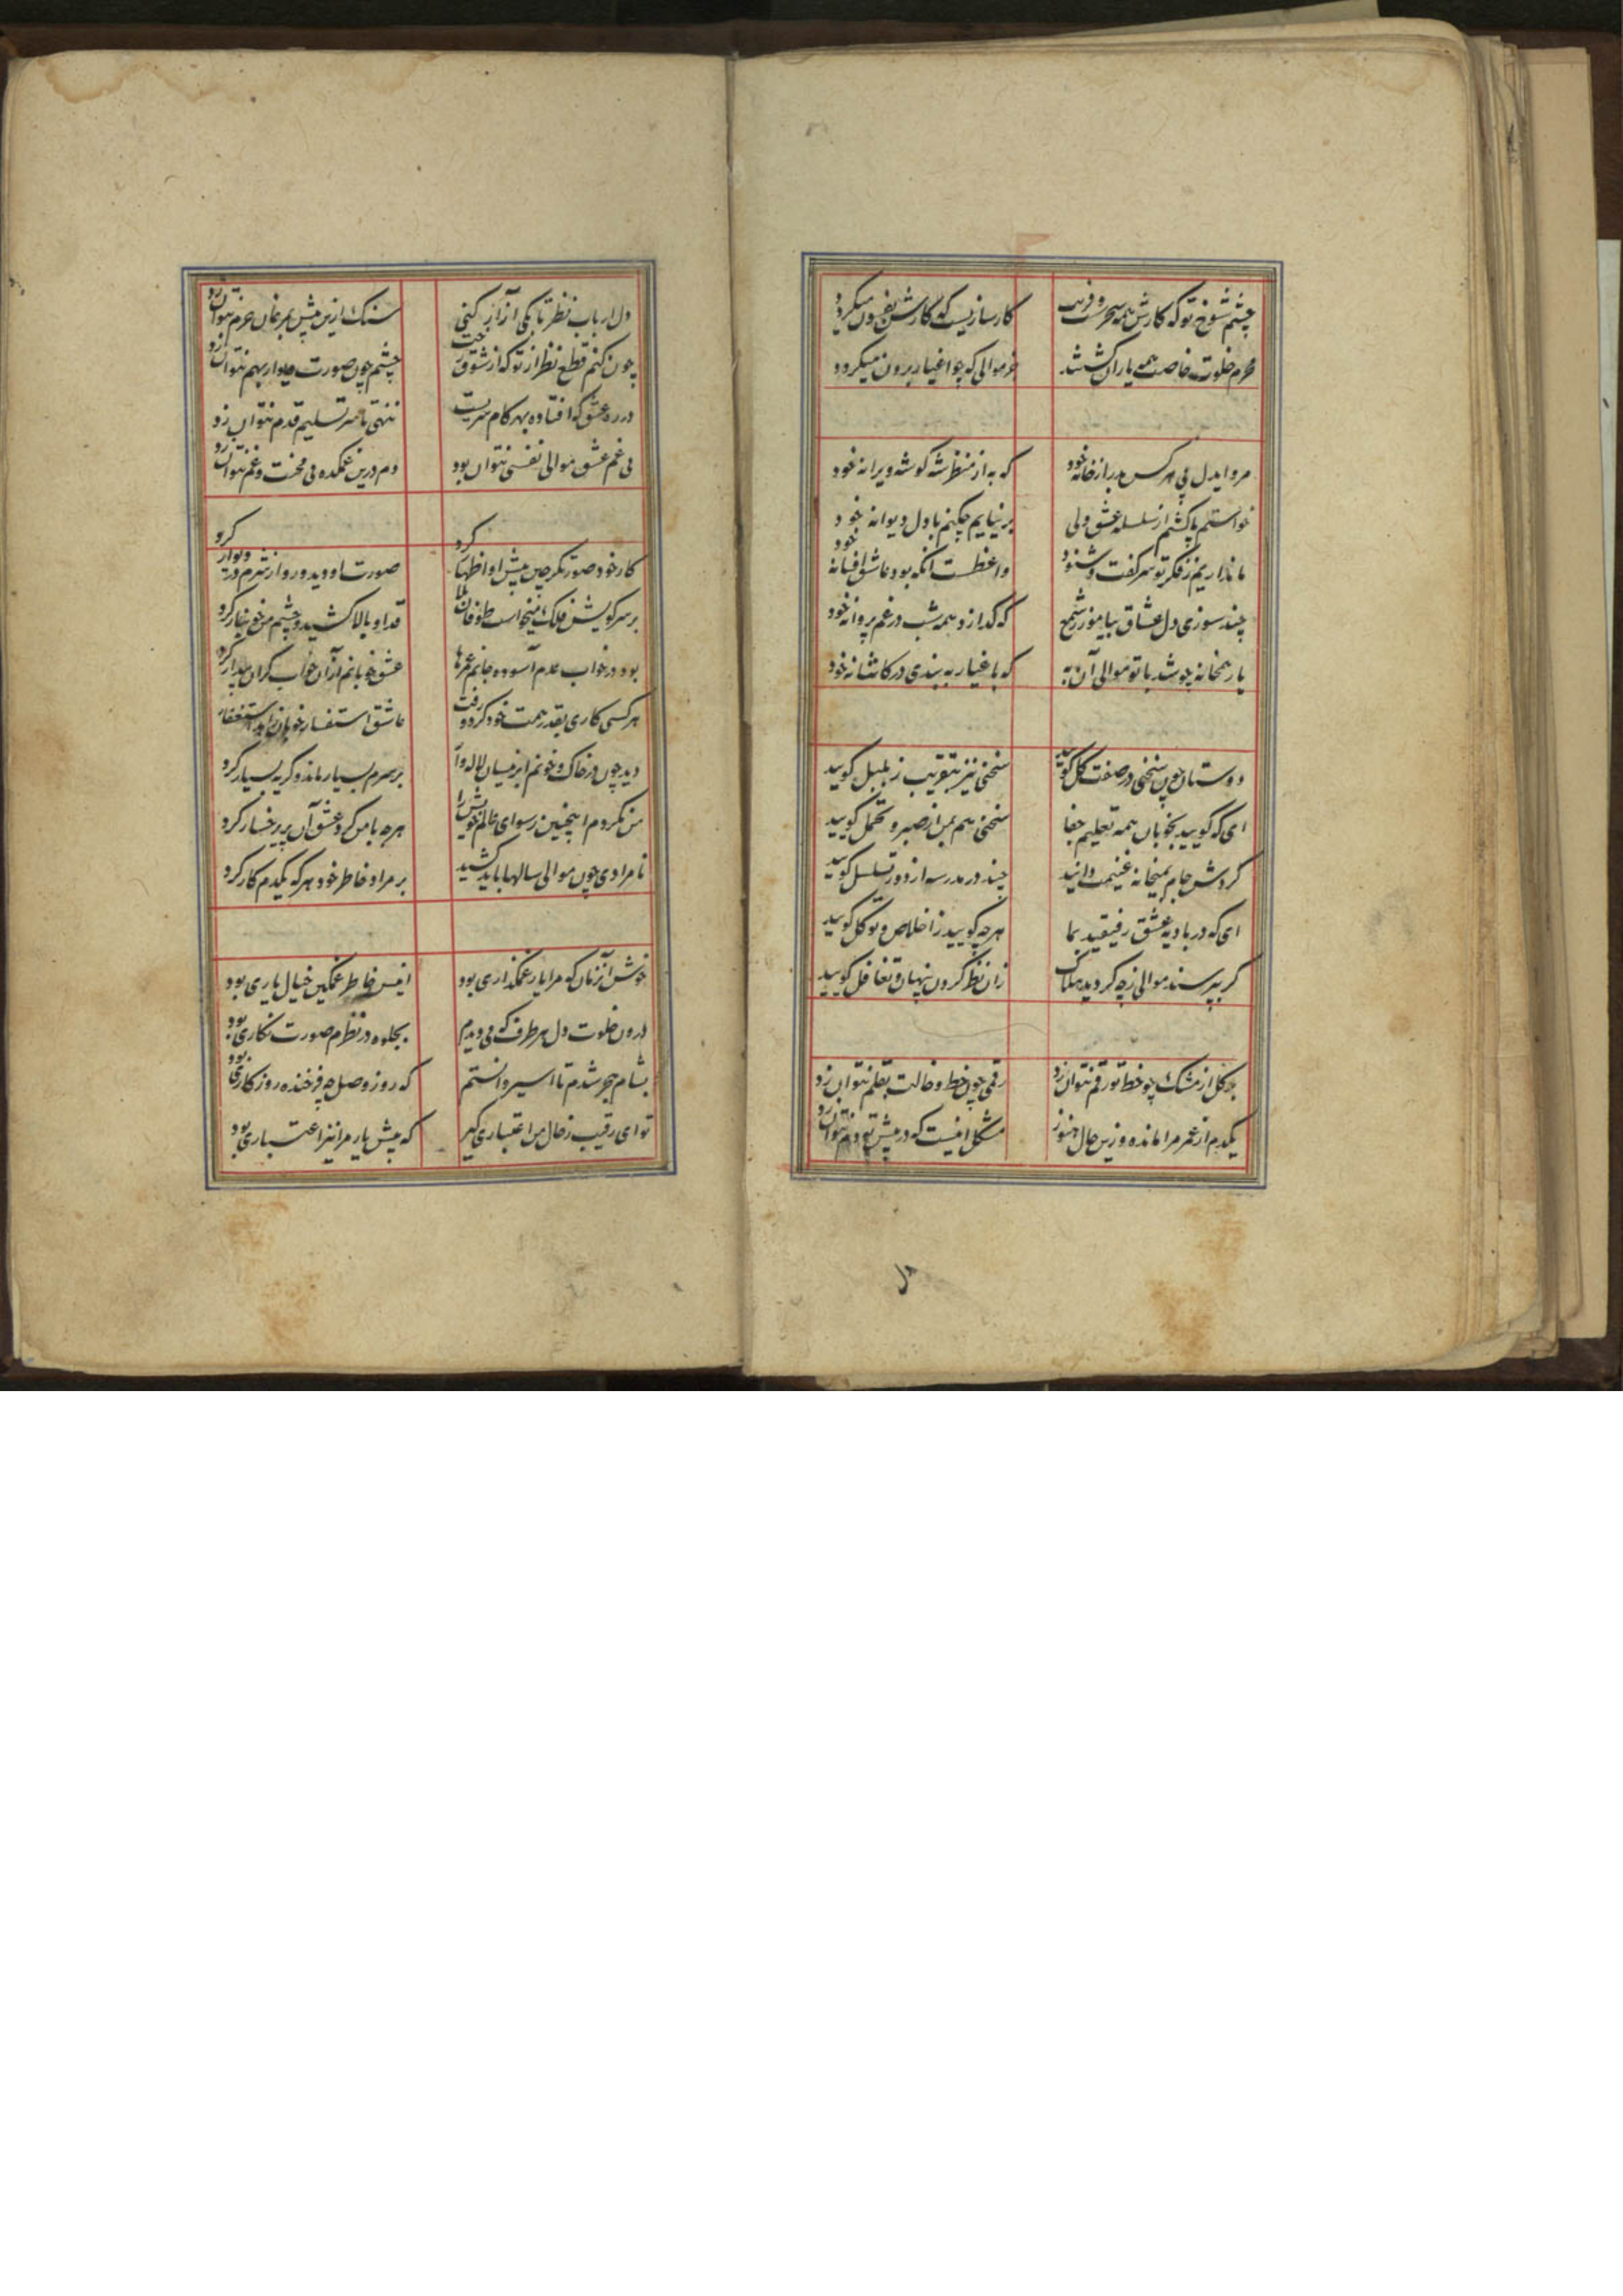 چشم شوخ تو که کارش همه سحرست و فریب
کارسازیست که کارش بفسون میکرد
محرم خلوت خاصت همه یاران کشتند
غیر موالی که چو اغیار برون میکردد
مرو ایدل پی هر کس بدر از خانه خود
که به از منظر شه کوشه ویرانه خود
خواستم پا کشم از سلسله عشق ولی
بر نیایم چکنم با دل دیوانه خود
ما نداریم ز فکر تو سر کفت و شنود
واعظست آنکه بود عاشق افسانه خود
چند سوزی دل عشاق بیاموز ز شمع
که کدازد همه شب در غم پروانه خود
یار همخانه چو شد با تو موالی آن به
که باغیار به بندی در کاشانه خود
دوستان چون سخنی در صفت کل کویید
سخنی نیز بتقریب ز بلبل کویید
ای که کویید بخوبان همه تعلیم جفا
سخنی هم بمن از صبر و تحمل کویید
کردش جام بمیخانه غنیمت دانید
چند در مدرسه از دور تسلسل کویید
ای که در بادیه عشق رفیقید بما
هر چه کویید ز اخلاص و توکل کویید
کر بپرسند موالی ز چه کردید هلاک
زان نظر کردن پنهان و تغافل کویید
بر کل از مشک چو خط تو رقم نتوان زد
رقمی چون خط و خالت بقلم نتوان زد
یکدم از عمر مرا مانده وزین حال هنوز
مشکل اینست که در پیش تو دم نتوان زد
دل ارباب نظر تا بکی آزار کنی
سنک ازین پیش بمرغان حرم نتوان زد
چون کنم قطع نظر از تو که از شوق رخت
چشم چون صورت دیوار بهم نتوان زد
در ره عشق که افتاده بهر کام سریست
ننهی تا سر تسلیم قدم نتوان زد
بی غم عشق موالی نفسی نتوان بود
دم درین غمکده بی محنت و غم نتوان زد
کار خود صورتکر چین پیش او اظهار کرد
صورت او دید و رو از شرم در دیوار کرد
بر سر کویش فلک میخواست طوفان بلا
قد او بالا کشید و چشم من خونبار کرد
بود در خواب عدم آسوده جانم عمرها
عشق خوبانم از آن خواب کران بیدار کرد
هر کسی کاری بقدر همت خود کرد و رفت
عاشق استفسار خوبان زاهد استغفار
دید چون در خاک و خونم ابر نیسان لاله وار
بر سرم بسیار ماند و کریه بسیار کرد
من نکردم اینچنین رسوای عالم خویش را
هر چه با من کرد عشق آن پری رخسار کرد
نامرادی چون موالی سالها باید کشید
بر مراد خاطر خود هر که یکدم کار کرد
خوش آنزمان که مرا یار غمکذاری بود
انیس خاطر غمکین خیال یاری بود
درون خلوت دل هر طرف که می دیدم
بجلوه در نظرم صورت نکاری بود
بشام هجر شدم تا اسیر دانستم
که روز وصل چه فرخنده روزکاری بود
تو ای رقیب ز حال من اعتباری کیر
که پیش یار مرا نیز اعتباری بود